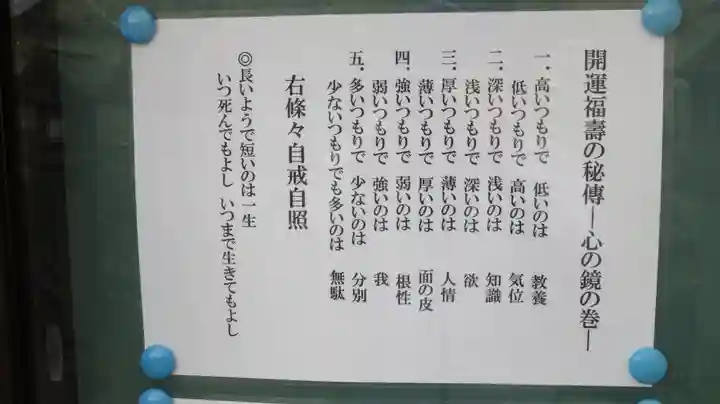 開運福壽の秘傳―心の鏡の巻―
一．高いつもりで　低いのは　教養
低いつもりで　高いのは　気位
二．深いつもりで　浅いのは　知識
浅いつもりで　深いのは　欲
三．厚いつもりで　薄いのは　人情
薄いつもりで　厚いのは　面の皮
四．強いつもりで　弱いのは　根性
弱いつもりで　強いのは　我
五．多いつもりで　少ないのは　分別
少ないつもりでも多いのは　無駄
右條々自戒自照
◎長いようで短いのは一生
いつ死んでもよし　いつまで生きてもよし